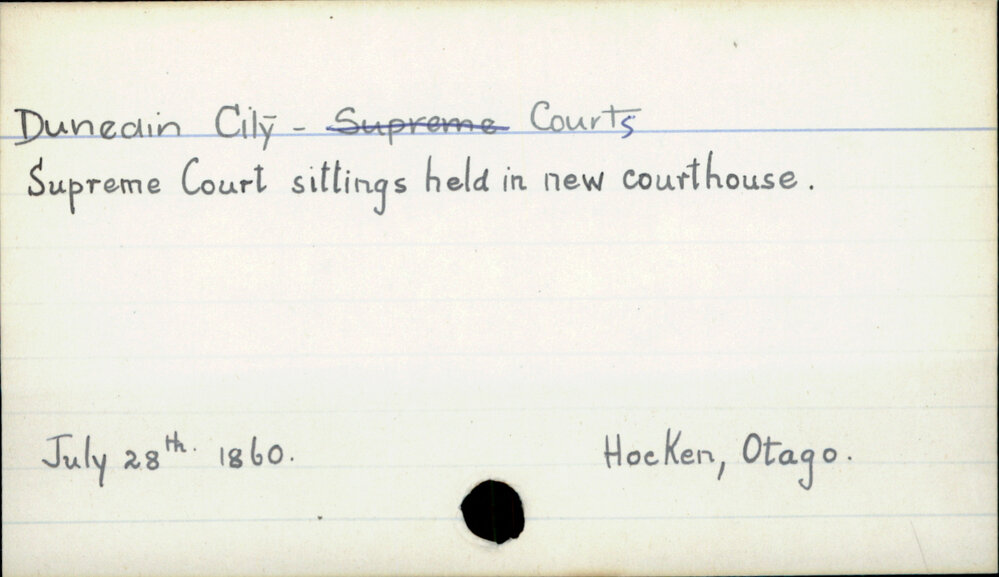 Dunedin City - Supreme Courts
Supreme Court sittings held in new courthouse.
July 28th. 1860.
Hocken, Otago.